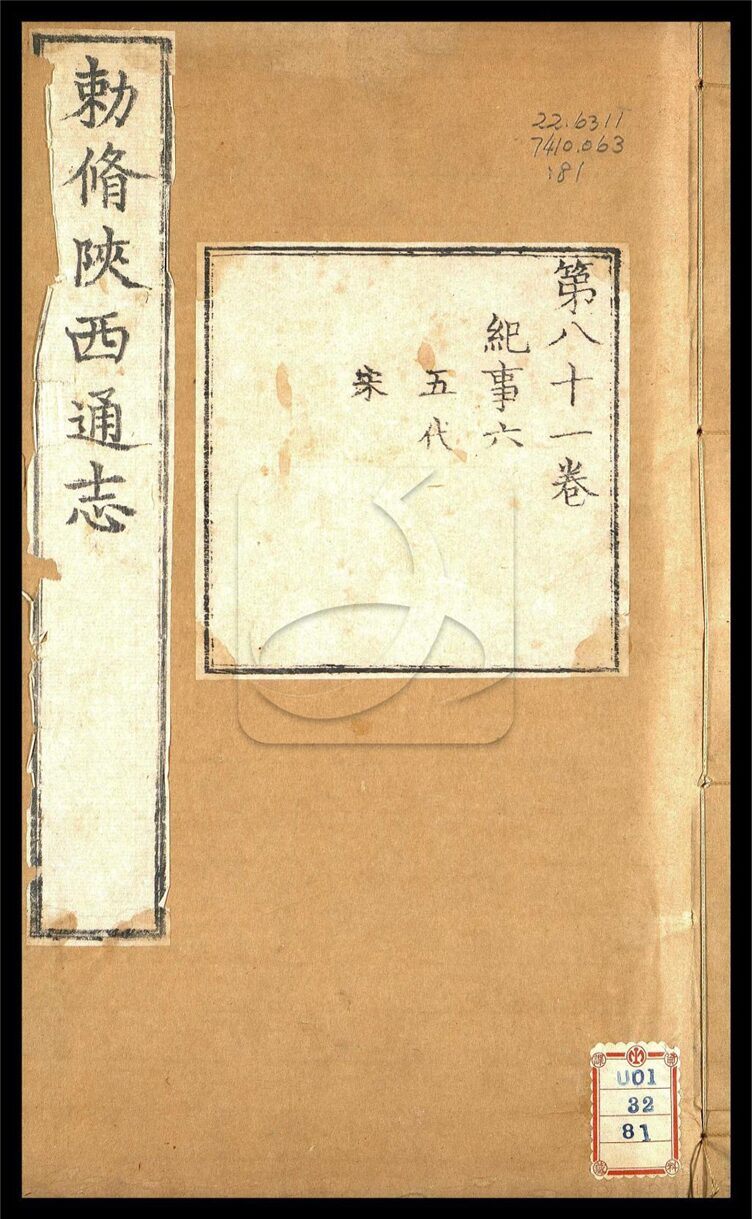 勅脩陝西通志
第八十一卷
紀事六
五代
宋
22.6311
7410.063
:81
U01
32
81